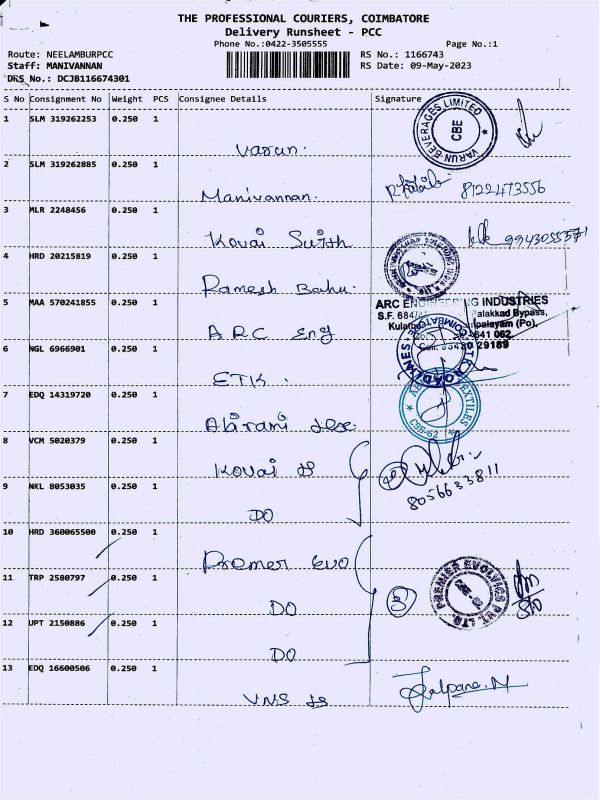 THE PROFESSIONAL COURIERS, COIMBATORE
Delivery Runsheet - PCC
Phone No.:0422-3505555 Page No.:1
Route: NEELAMBURPCC RS No.: 1166743
Staff: MANIVANNAN RS Date: 09-May-2023
DRS No.: DCJB116674301
S No Consignment No Weight PCS Consignee Details Signature
1 SLM 319262253 0.250 1 Varun.
VARUN BEVERAGES LIMITED CBE
2 SLM 319262885 0.250 1 Manivannan. 8122473556
3 MLR 2248456 0.250 1 Kovai Sujith 9943055371
4 HRD 20215819 0.250 1 Ramesh Babu.
5 MAA 570241855 0.250 1 ARC Eng
ARC ENGINEERING INDUSTRIES
S.F. 684/ Palakkad Bypass,
(Po),
641 062
29189
6 NGL 6966901 0.250 1 ETK.
ETK ROADLINES COIMBATORE
7 EDQ 14319720 0.250 1 Abirami Tex.
TEXTILES CBE-62
8 VCM 5020379 0.250 1 Kovai
8056633811
9 NKL 8053035 0.250 1 DO
10 HRD 360065500 0.250 1 Premer evo
11 TRP 2580797 0.250 1 DO 3
PREMIER EVOLVICS PVT. LTD.
12 UPT 2150886 0.250 1 DO
13 EDQ 16600506 0.250 1 VNS
Kalpana.M